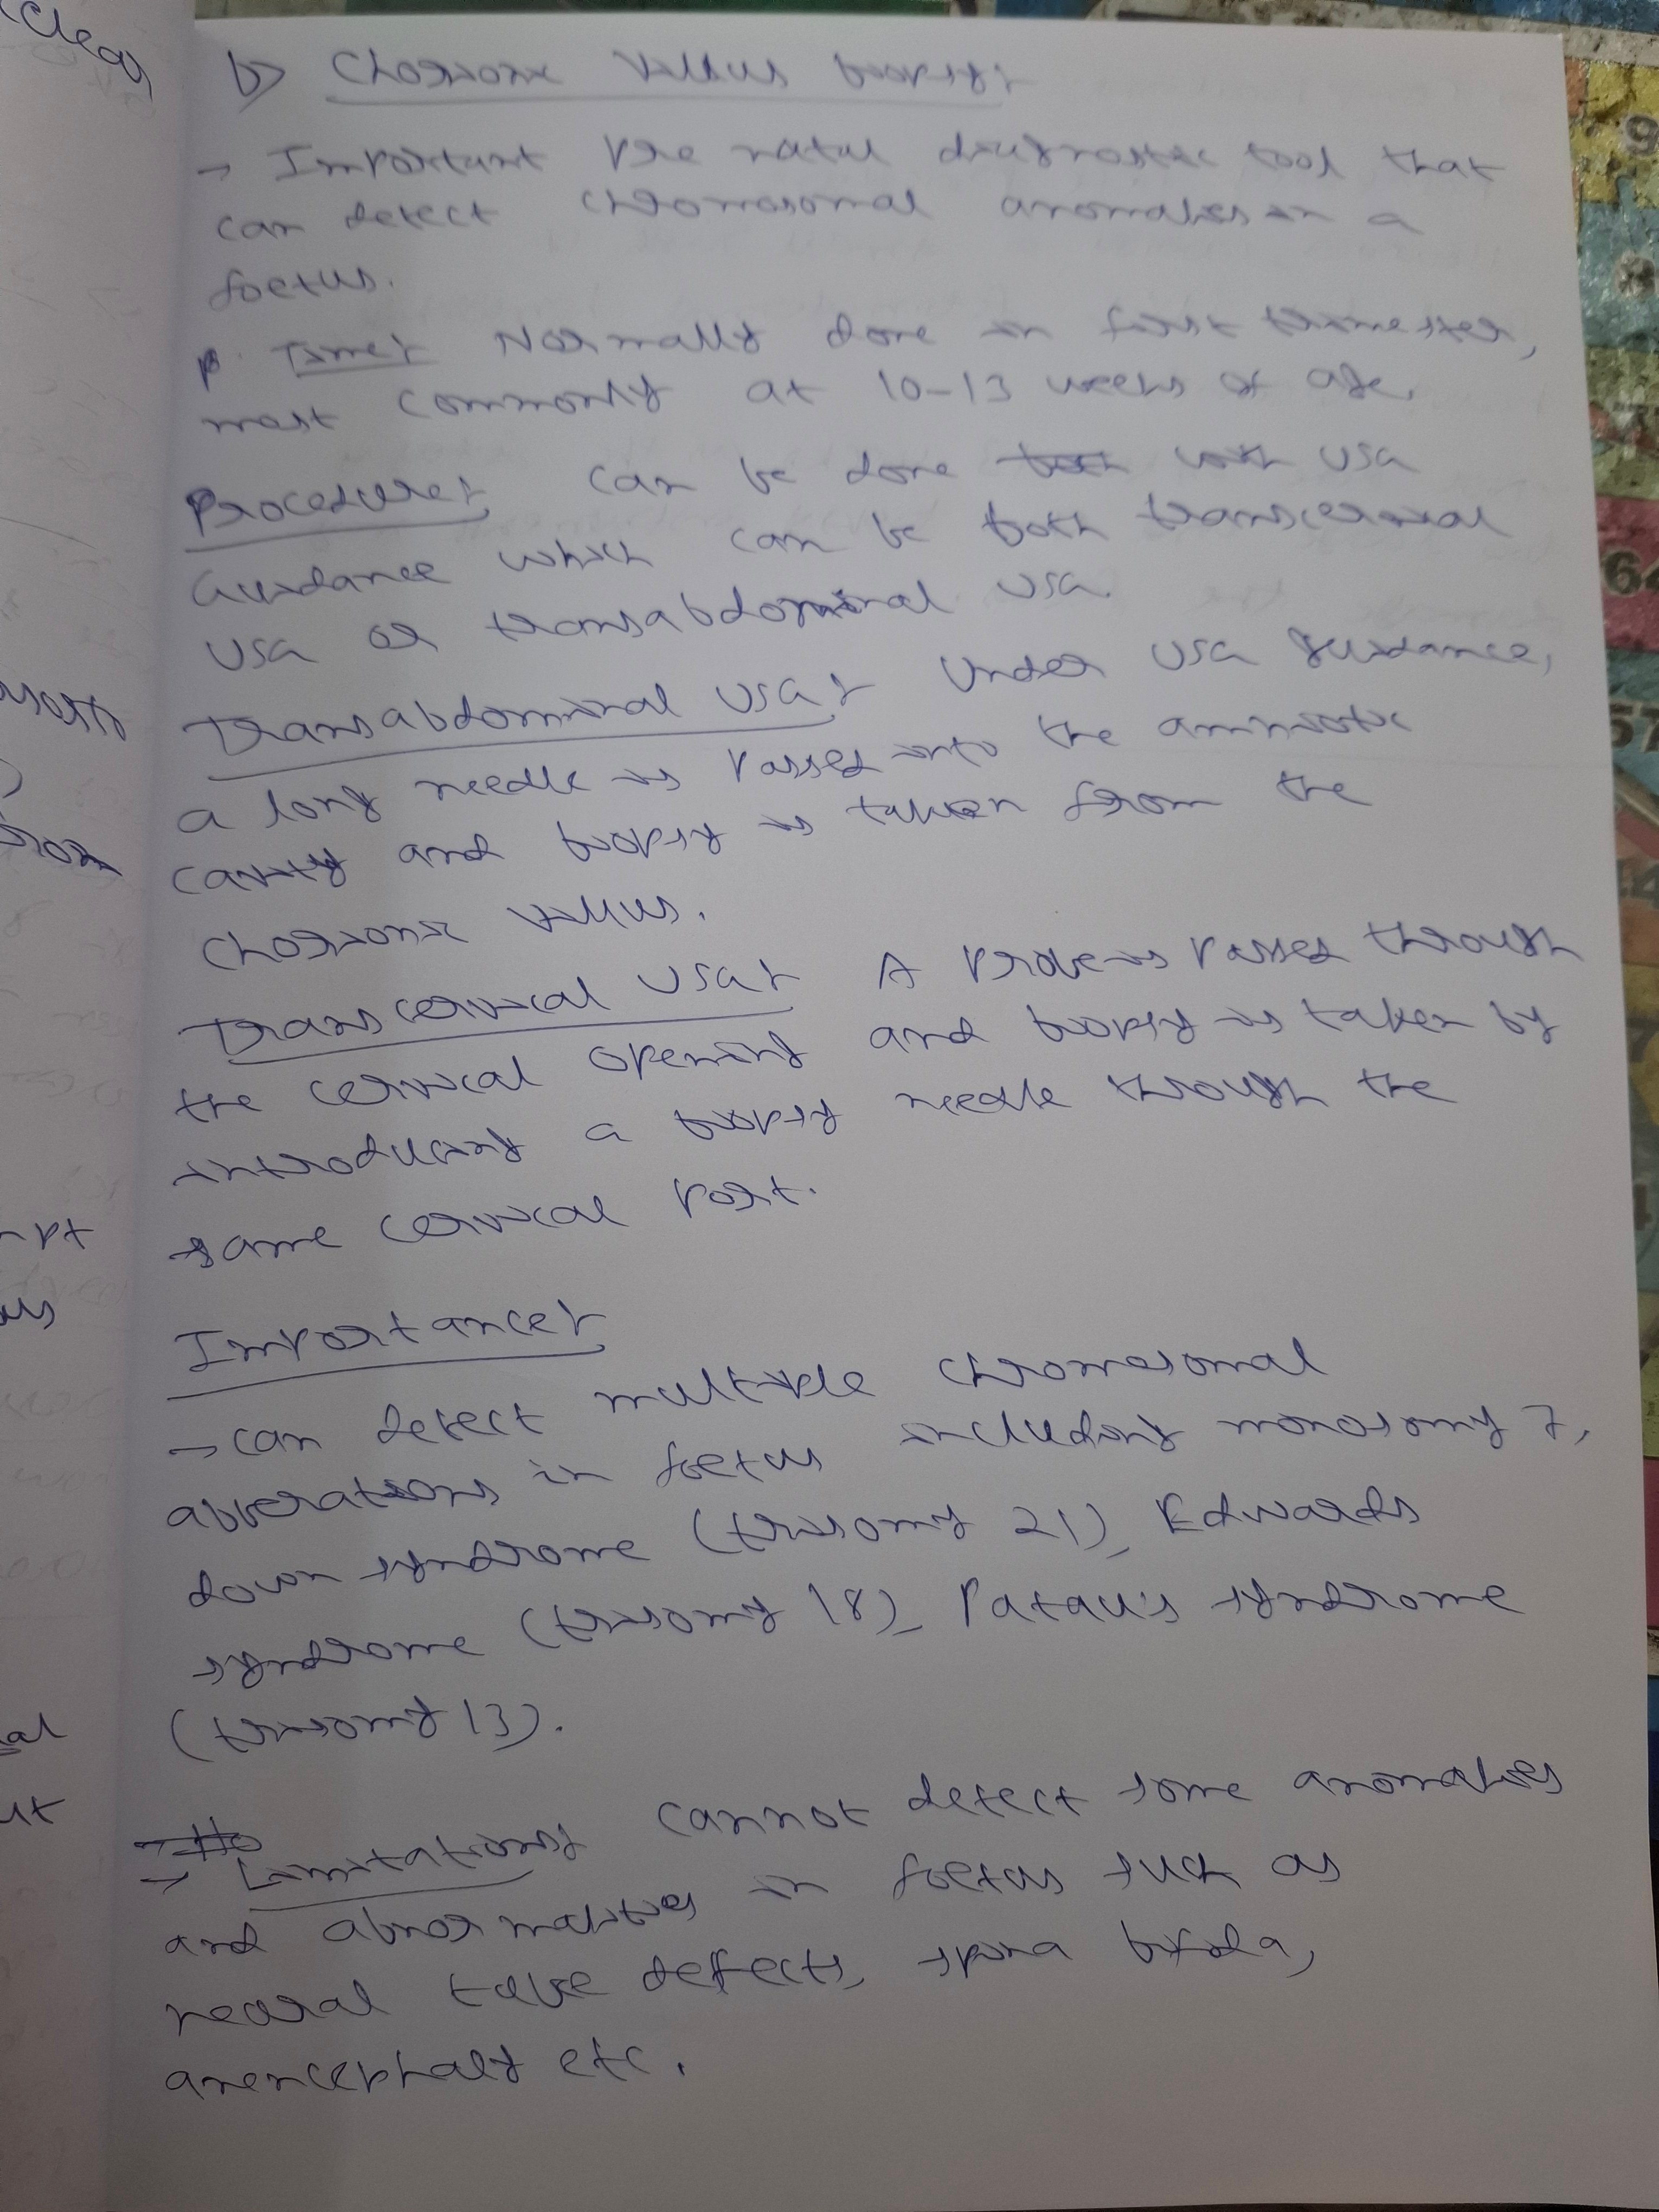 Clear
b) Chorionic villus biopsy:
→ Important pre natal diagnostic tool that
can detect chromosomal anomalies in a
foetus.
Time: Normally done in first trimester,
most commonly at 10-13 weeks of age.
Procedure: can be done with USG
Guidance which can be both transcervical
USG or transabdominal USG.
Transabdominal USG: Under USG guidance,
a long needle is passed into the amniotic
cavity and biopsy is taken from the
chorionic villus.
Transcervical USG: A probe is passed through
the cervical opening and biopsy is taken by
introducing a biopsy needle through the
same cervical port.
Importance:
→ can detect multiple chromosomal
abberations in foetus including monosomy 7,
down syndrome (trisomy 21), Edwards
syndrome (trisomy 18), Patau's syndrome
(trisomy 13).
→ Limitations: cannot detect some anomalies
and abnormalities in foetus such as
neural tube defects, spina bifida,
anencephaly etc.